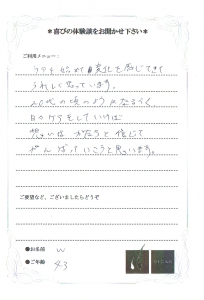 ＊喜びの体験談をお聞かせ下さい＊
ご利用メニュー：
うれしく思っています。
20代の頃のようになるべく
日々ケアをしていけば
思いは かなうと信じて
がんばっていこうと思います。
ご要望など、ございましたらどうぞ
●お名前 W
●ご年齢 43